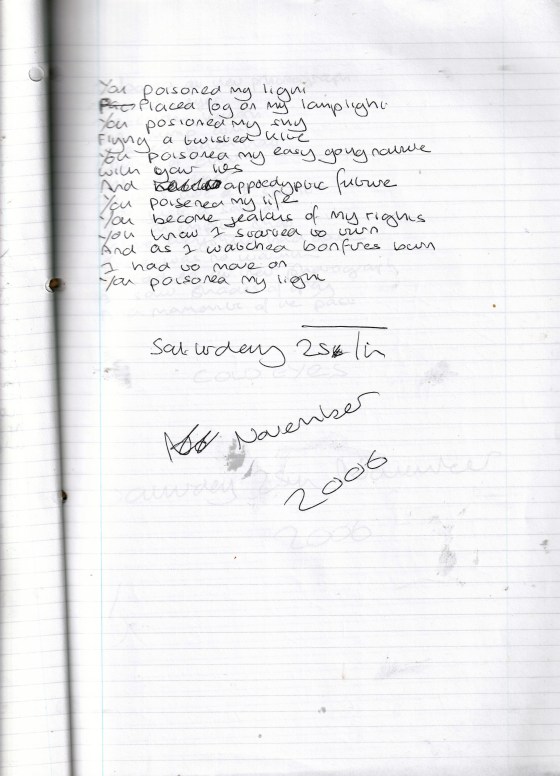 You poisoned my light
Placed fog on my lamplight
You posioned my sky
Flying a twisted kite
You poisoned my easy going nature
with your lies
And appocalyptic future
You poisened my life
You become jealous of my nights
You know I started to burn
And as I watched bonfires burn
I had to move on
You poisoned my light
Saturday 25th
November
2006